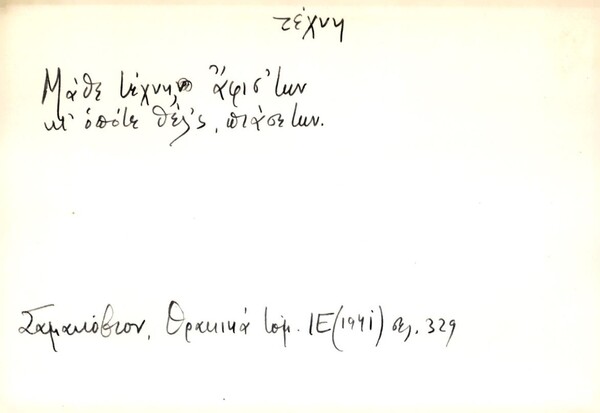 τέχνη
Μάθε τέχνη, ἄφισ' την
κι' ὁπότε θέλ'ς, πιάσε την.
Σαμακόβιον, Θρακικά τόμ. ΙΕ (1941) σελ. 329